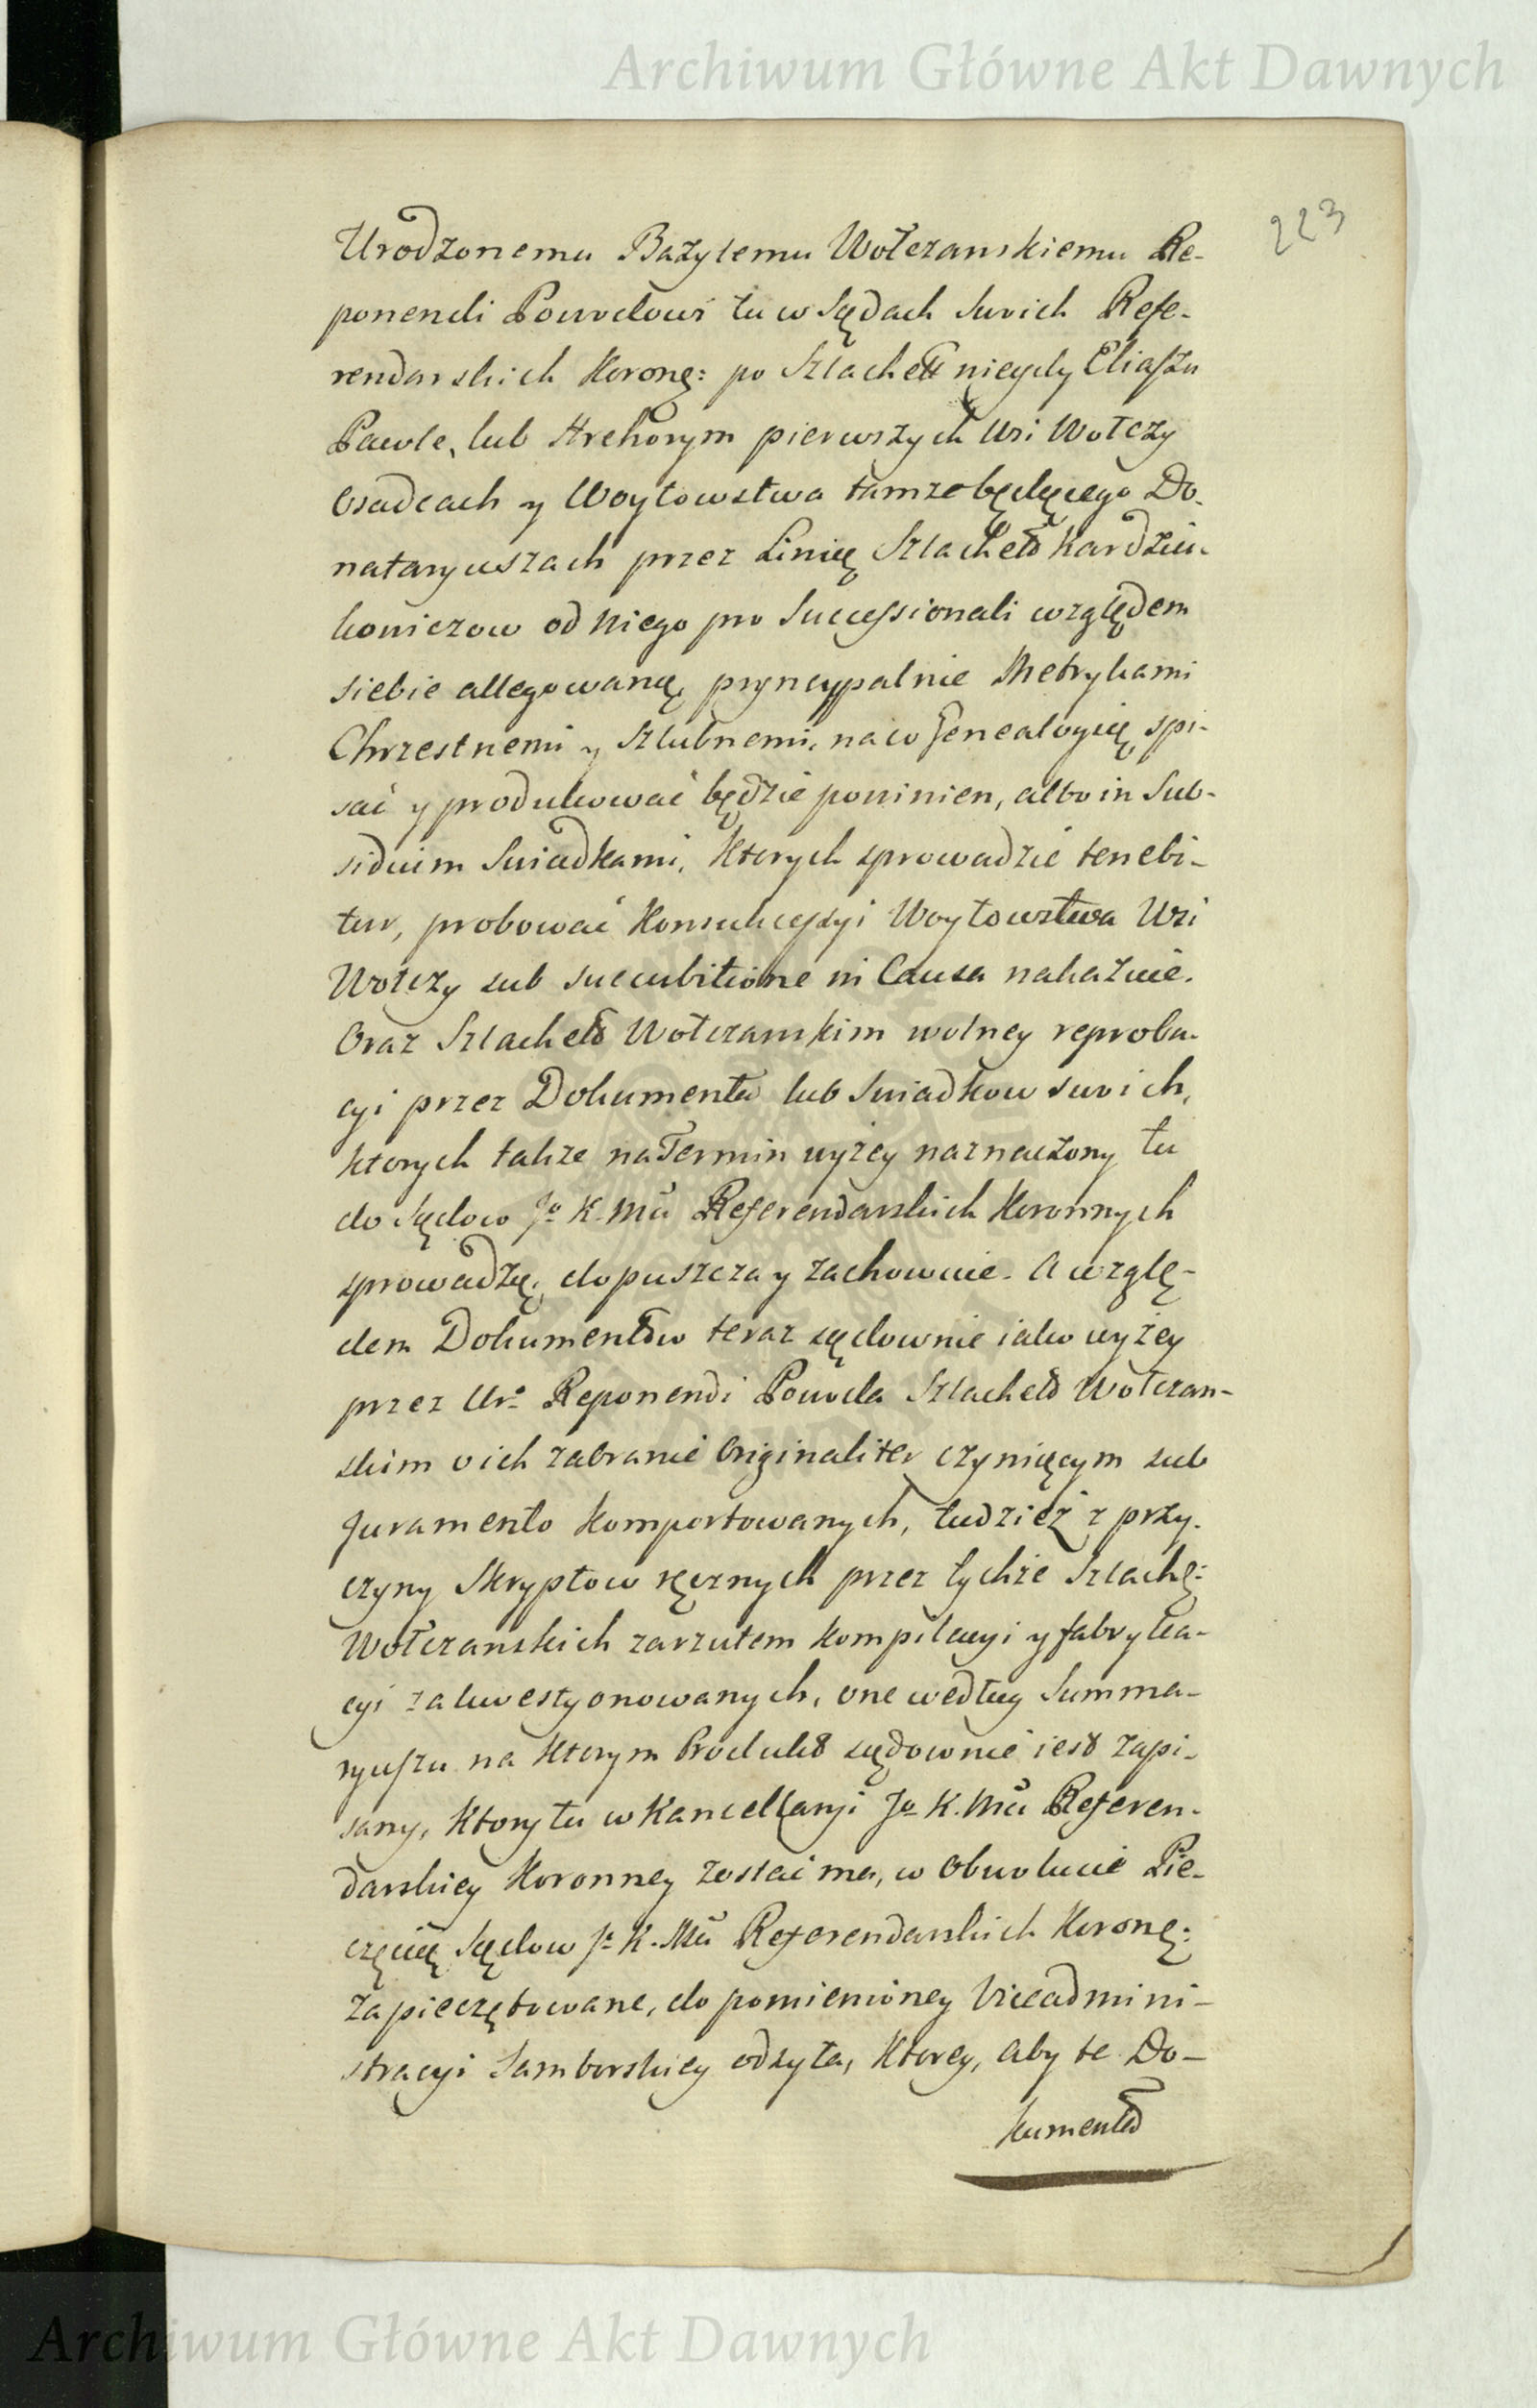 Archiwum Główne Akt Dawnych
223
Urodzonemu Bazylemu Wołczanskiemu Re-
ponendi Powodowi tu w Sądach swoich Refe-
rendarskich Koronę: po Szlachett niegdy Eliaszu
Pawle, lub Hrehorym pierwszych Wsi Wołczy
Osadcach y Woytowstwa tamze będącego Do-
nataryuszach przez Linię Szlachetd Kardziu-
koniczow od niego pro Successionali względem
siebie allegowaną, pryncypalnie Metrykami
Chrzestnemi y Szlubnemi, naco Genealogię spi-
sać y produkować będzie powinien, albo in Sub-
sidium Swiadkami, Ktorych sprowadzić tenebi-
tur, probować Konsukcessyi Woytowstwa Wsi
Wołczy sub succubitione in Causa nakazuie.
Oraz Szlachetd Wołczanskim wolney reproba-
cyi przez Dokumenta lub Swiadkow swoich,
Ktorych takze na Termin wyżey naznaczony tu
do Sądow Jo K. Mci Referendarskich Koronnych
sprowadzą, dopuszcza y zachowuie. A wzglę-
dem Dokumentow teraz sądownie iako wyżey
przez Uro Reponendi Powoda Szlachetd Wołczan-
skim o ich zabranie Originaliter czyniącym sub
Juramento Komportowanych, tudzież z przy-
czyny Skryptow ręcznych przez tychże Szlachę:
Wołczanskich zarzutem Kompilacyi y fabryka-
cyi zakwestyonowanych, one według Summa-
ryuszu na Ktorym Produkt sądownie iest zapi-
sany, Ktory tu w Kancellaryi Jo K. Mci Referen-
darskiey Koronney zostać ma, w Obwolucie Pie-
częcią Sądow Jo K. Mci Referendarskich Koronę:
zapieczętowane, do pomienioney Viceadmini-
stracyi Samborskiey odsyła, Ktorey, aby te Do-
kumenta
Archiwum Główne Akt Dawnych